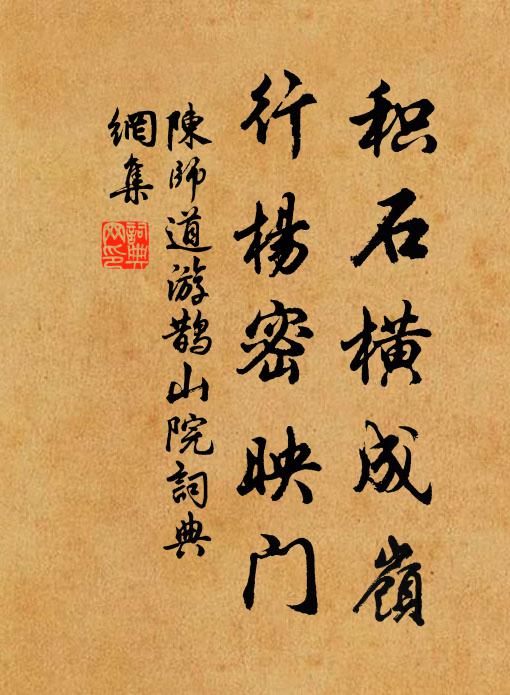 积石横成嶺
行楊密映门
陳師道游鵲山院詞典
網集
詞典網印